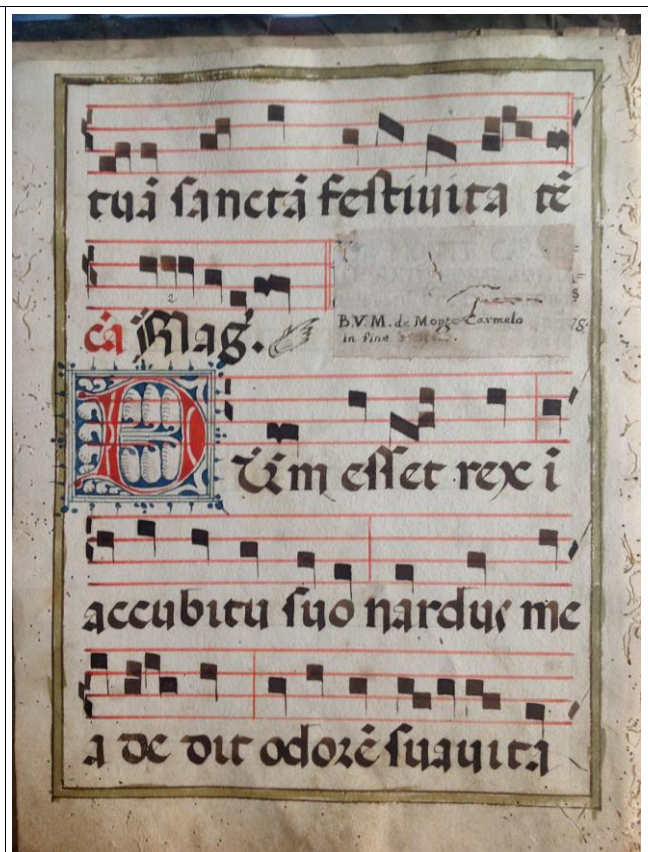 tuā sanctā festiuita tē
cā Mag.
B.V.M. de Monte Carmelo
in fine
DUm esset rex i
accubitu suo nardus me
a de dit odorē suauita